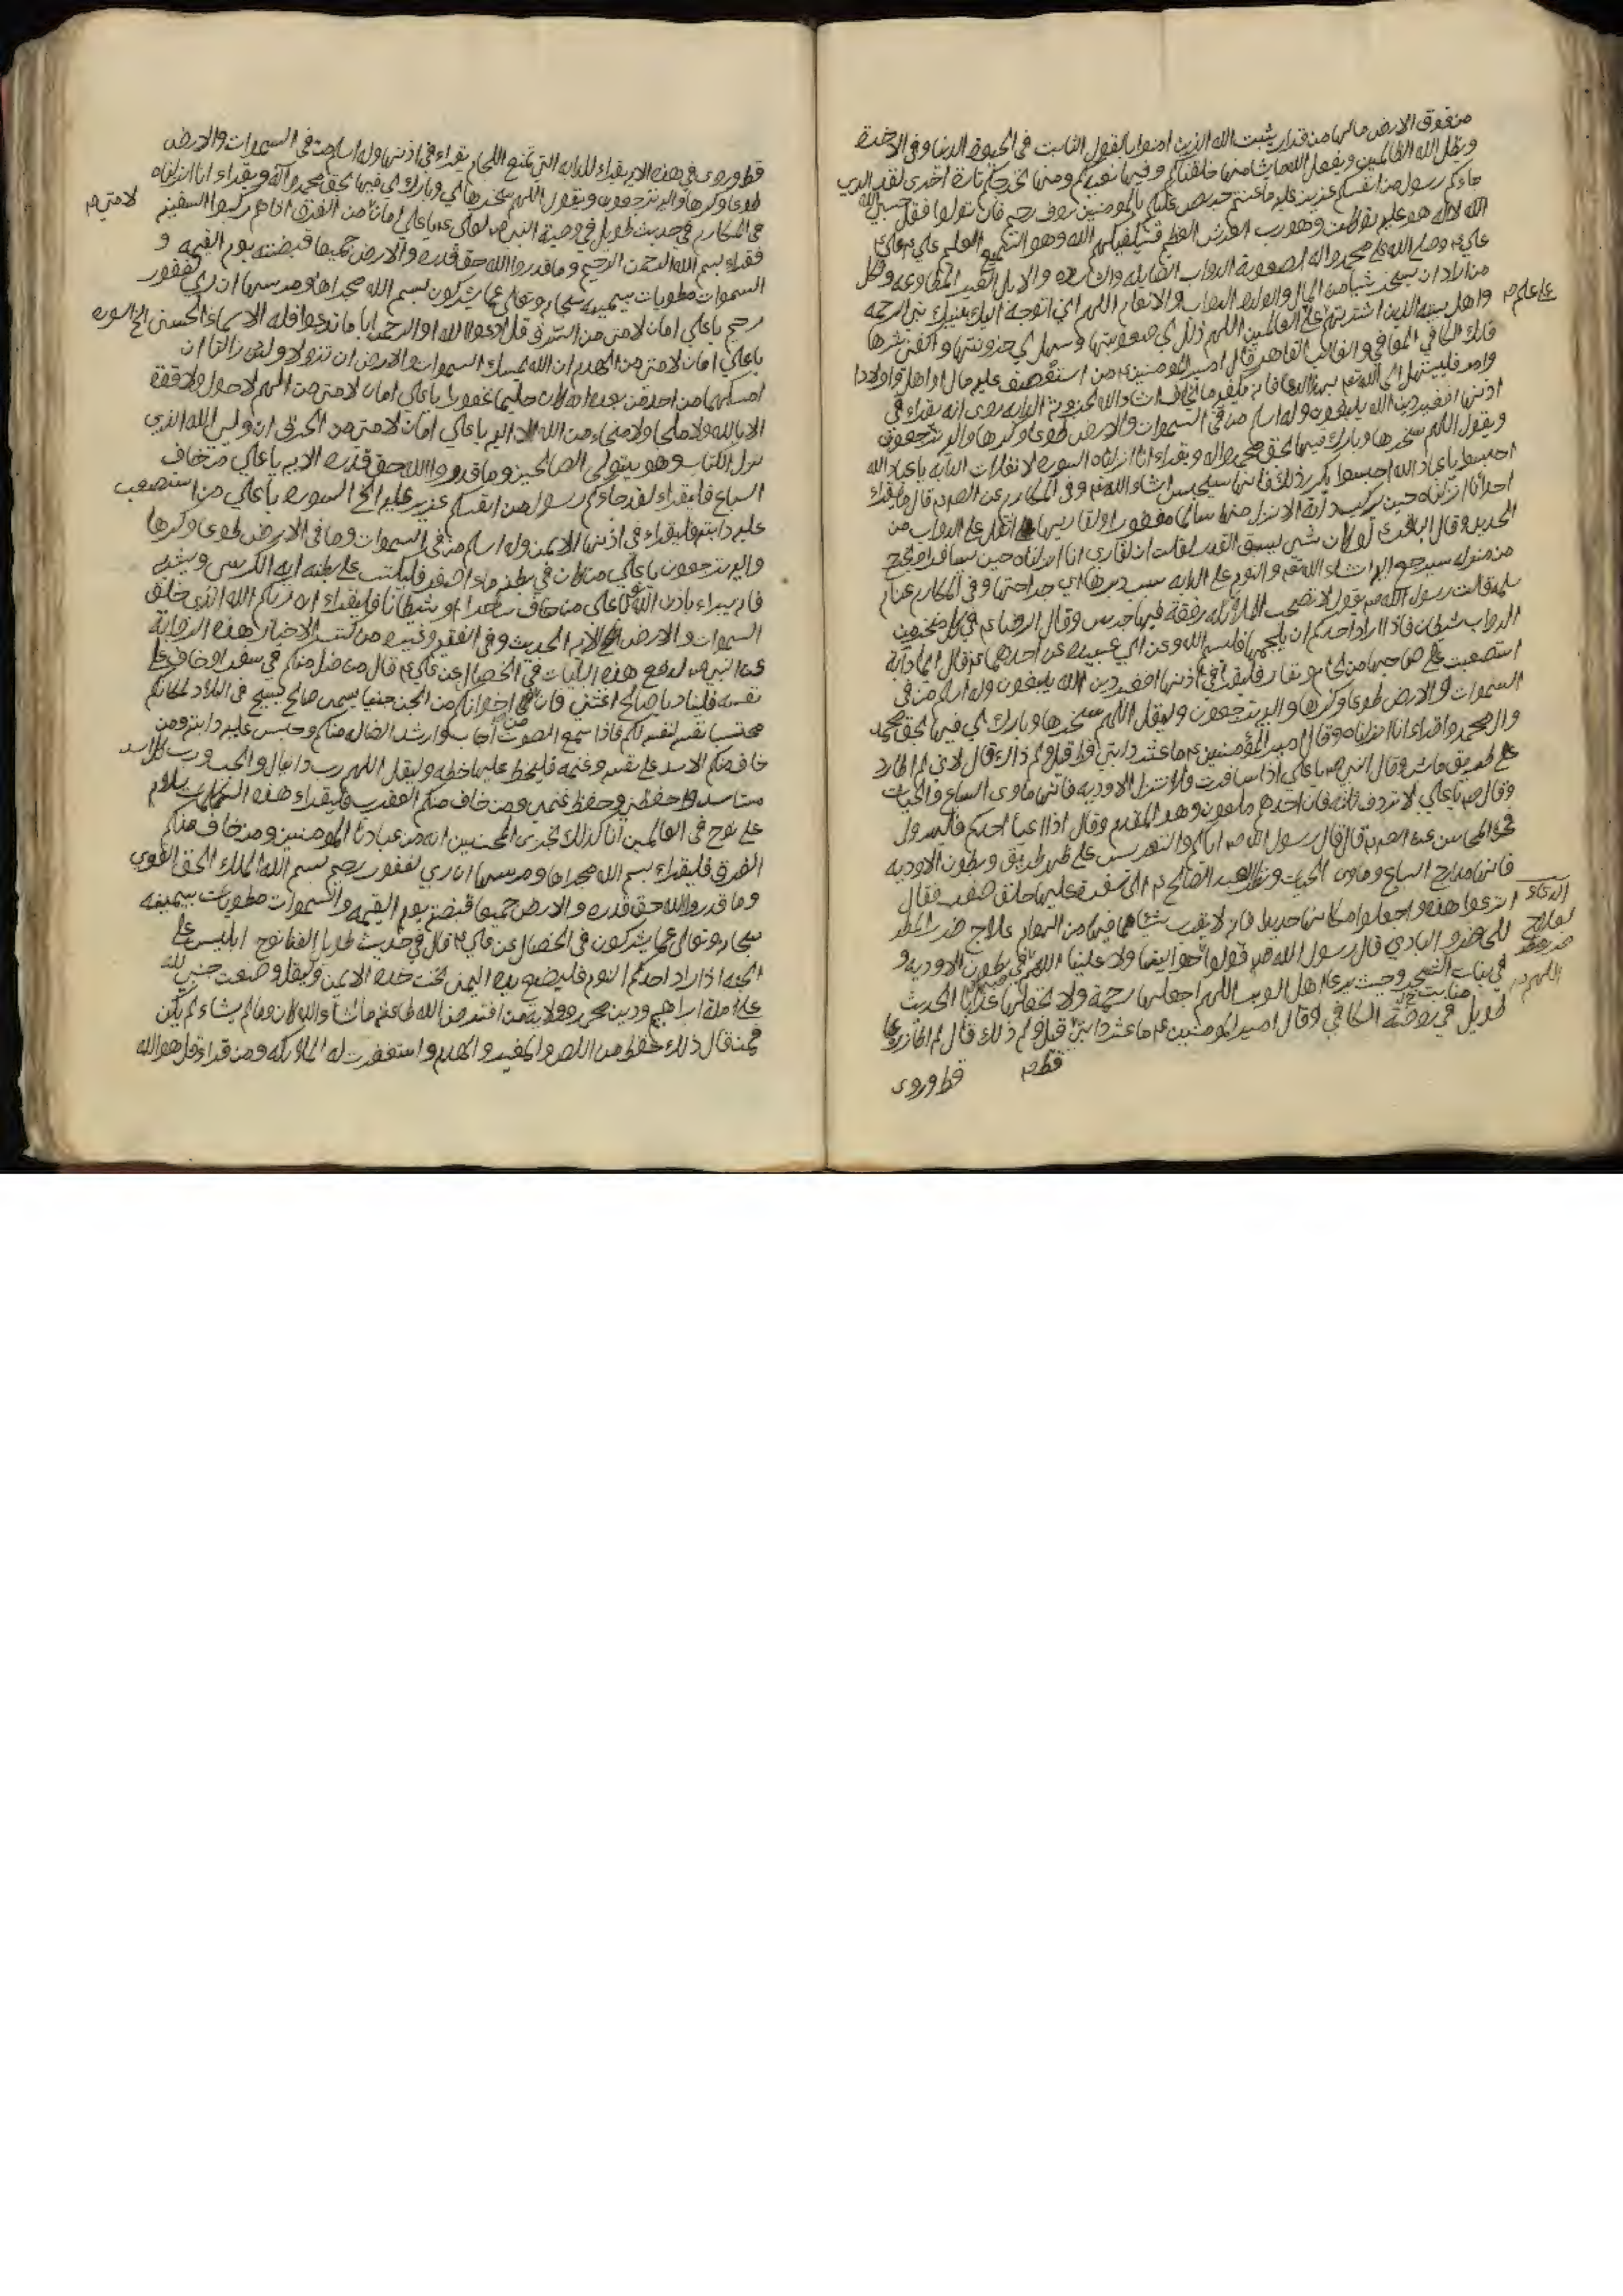 من فوق الارض مالها من قرار يثبت الله الذين امنوا بالقول الثابت في الحيوة الدنيا وفي الاخرة
ويضل الله الظالمين ويفعل الله ما يشا منها خلقناكم وفيها نعيدكم ومنها نخرجكم تارة اخرى لقد
جاءكم رسول من انفسكم عزيز عليه ما عنتم حريص عليكم بالمومنين روف رحيم فان تولوا فقل حسبي الله
الله لا اله هو عليه توكلت وهو رب العرش العظيم فسيكفيكهم الله وهو السميع العليم
وصلى الله على محمد واله لصعوبة الدواب
من اراد ان يسخر شيا من المال والدواب والانعام اللهم اني اتوجه اليك بنبيك نبي الرحمه
واهل بيته الذين اخترتهم على العالمين اللهم ذلل لي صعوبتها وسهل لي حزونتها واكفني شرها
على علم
فانك الكافي المعافي والغالب القاهر قال امير المومنين من استصعب عليه مال او اهل او اولاد
فليبتهل الى الله
اذنها افغير دين الله يبغون وله اسلم من في السموات والارض طوعا وكرها واليه ترجعون
ويقول اللهم سخرها وبارك فيها بحق محمد واله ويقراء انا انزلناه السوره لانفلات الدابه يا عباد الله
احبسوا يا عباد الله احبسوا
احد انا انزلناه حين يركب دابه الا نزل منها سالما مغفورا ولقاريها اثقل على الدواب من
الحديد وقال الباقر لو كان شي يسبق القدر لقلت ان قاري انا انزلناه حين يسافر او يخرج
من منزله سيرجع اليه انشاء الله والنوم على الدابه سبب دبرها اي جراحتها وفي المكارم عن ام
سلمه قالت رسول الله يقول لا تصحب الملائكه رفقة فيها جرس وقال الرضا في كل منخر من
الدواب شيطان فاذا اراد احدكم ان يلجمها فليسم الله وعن ابي عبيده عن احدهما قال ايما دابة
استصعبت على صاحبها من لجام ونفار فليقرأ في اذنها افغير دين الله يبغون وله اسلم من في
السموات والارض طوعا وكرها واليه ترجعون وليقل اللهم سخرها وبارك لي فيها بحق محمد
وال محمد واقراء انا انزلناه وقال امير المؤمنين ما عثرت دابتي قط قيل ولم ذاك قال لاني لم اطا
على طريق وقال النبي يا علي اذا سافرت فلا تنزل الاوديه فانها ماوى السباع والحيات
وقال يا علي لا تردف ثلثه فان احدهم ملعون وهو المقدم وقال اذا
في المحاسن قال قال رسول الله اياكم والتعريس على ظهر طريق وبطون الاوديه
فانها مدارج السباع وماوى الحيات ونظر العبد الصالح الى سفره عليها حلق صفر فقال
انزعوا هذه واجعلوا مكانها حديدا فانه لا يقرب شيا مما فيها من الهوام علاج ضر المطر
الدعاء لعلاج ضر المطر
للحاضر والبادي قال رسول الله قولوا حوالينا ولا علينا اللهم في بطون الاوديه و
اللهم
في نبات الشجر وحيث يرعى اهل الوبر اللهم اجعلها رحمة ولا تجعلها عذابا الحديث
منابت
طويل في روضة الكافي وقال امير المومنين ما عثرت دابتي قيل ولم ذلك قال لم
قط
قط وروى
قط وروى في هذه الايه يقراء للدابه التي تمنع اللجام يقراء في اذنها وله اسلم من في السموات والارض
طوعا وكرها واليه ترجعون ويقول اللهم سخرها لي وبارك لي فيها بحق محمد وآله ويقراء انا انزلناه
في المكارم في حديث طويل في وصية النبي لعلي يا علي امان من الغرق اذا هم ركبوا السفينه
لامتي
فقراء بسم الله الرحمن الرحيم وما قدروا الله حق قدره والارض جميعا قبضته يوم القيمه و
السموات مطويات بيمينه سبحانه وتعالى عما يشركون بسم الله مجراها ومرسيها ان ربي لغفور
رحيم يا علي امان لامتي من السرق قل ادعوا الله او ادعوا الرحمن ايا ما تدعوا فله الاسماء الحسنى الى السوره
يا علي امان لامتي من الهدم ان الله يمسك السموات والارض ان تزولا ولئن زالتا ان
امسكهما من احد من بعده انه كان حليما غفورا يا علي امان لامتي من الهم لا حول ولا قوة
الا بالله ولا ملجا ولا منجاء من الله الا اليه يا علي امان لامتي من الحرق ان ولي الله الذي
نزل الكتاب وهو يتولى الصالحين وما قدروا الله حق قدره الايه يا علي من خاف
السباع فليقراء لقد جاءكم رسول من انفسكم عزيز عليه الى السوره يا علي من استصعب
عليه دابته فليقراء في اذنها الايمن وله اسلم من في السموات وما في الارض طوعا وكرها
واليه ترجعون يا علي من كان في بطنه ماء اصفر فليكتب على بطنه اية الكرسي ويشربه
فانه يبراء باذن الله يا علي من خاف ساحرا او شيطانا فليقراء ان ربكم الله الذي خلق
السموات والارض الايه الحديث وفي الفقيه وغيره من كتب الاخبار هذه الرواية
عن النبي لدفع هذه البليات في الخصال عن علي قال من ضل منكم في سفر او خاف على
نفسه فليناد يا صالح اغثني فان في اخوانكم من الجن جنيا يسمى صالح يسيح في البلاد لمكانكم
محتسبا نفسه لكم فاذا سمع الصوت اجاب وارشد الضال منكم وحبس عليه دابته ومن
خاف منكم الاسد على نفسه وغنمه فليخط عليها خطه وليقل اللهم رب دانيال والجب ورب كل اسد
مستاسد احفظني واحفظ غنمي ومن خاف منكم العقرب فليقراء هذه الايات سلام
على نوح في العالمين انا كذلك نجزى المحسنين انه من عبادنا المومنين ومن خاف منكم
الغرق فليقراء بسم الله مجراها ومرسيها ان ربي لغفور رحيم بسم الله الملك الحق القوي
وما قدروا الله حق قدره والارض جميعا قبضته يوم القيمه والسموات مطويات بيمينه
سبحانه وتعالى عما يشركون في الخصال عن علي قال في حديث طويل
اذا اراد احدكم النوم فليضع يده اليمنى تحت خده الايمن وليقل وضعت جنبي لله
على ملة ابراهيم ودين محمد وولاية من افترض الله طاعته ماشاء الله كان وما لم يشاء لم يكن
فمن قال ذلك حفظ من اللص والمغير والهدم واستغفرت له الملائكه ومن قراء قل هو الله